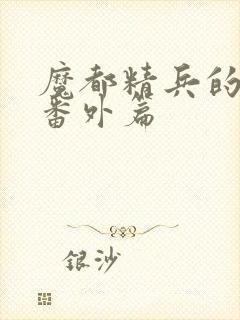 魔都精兵的
番外篇
银沙